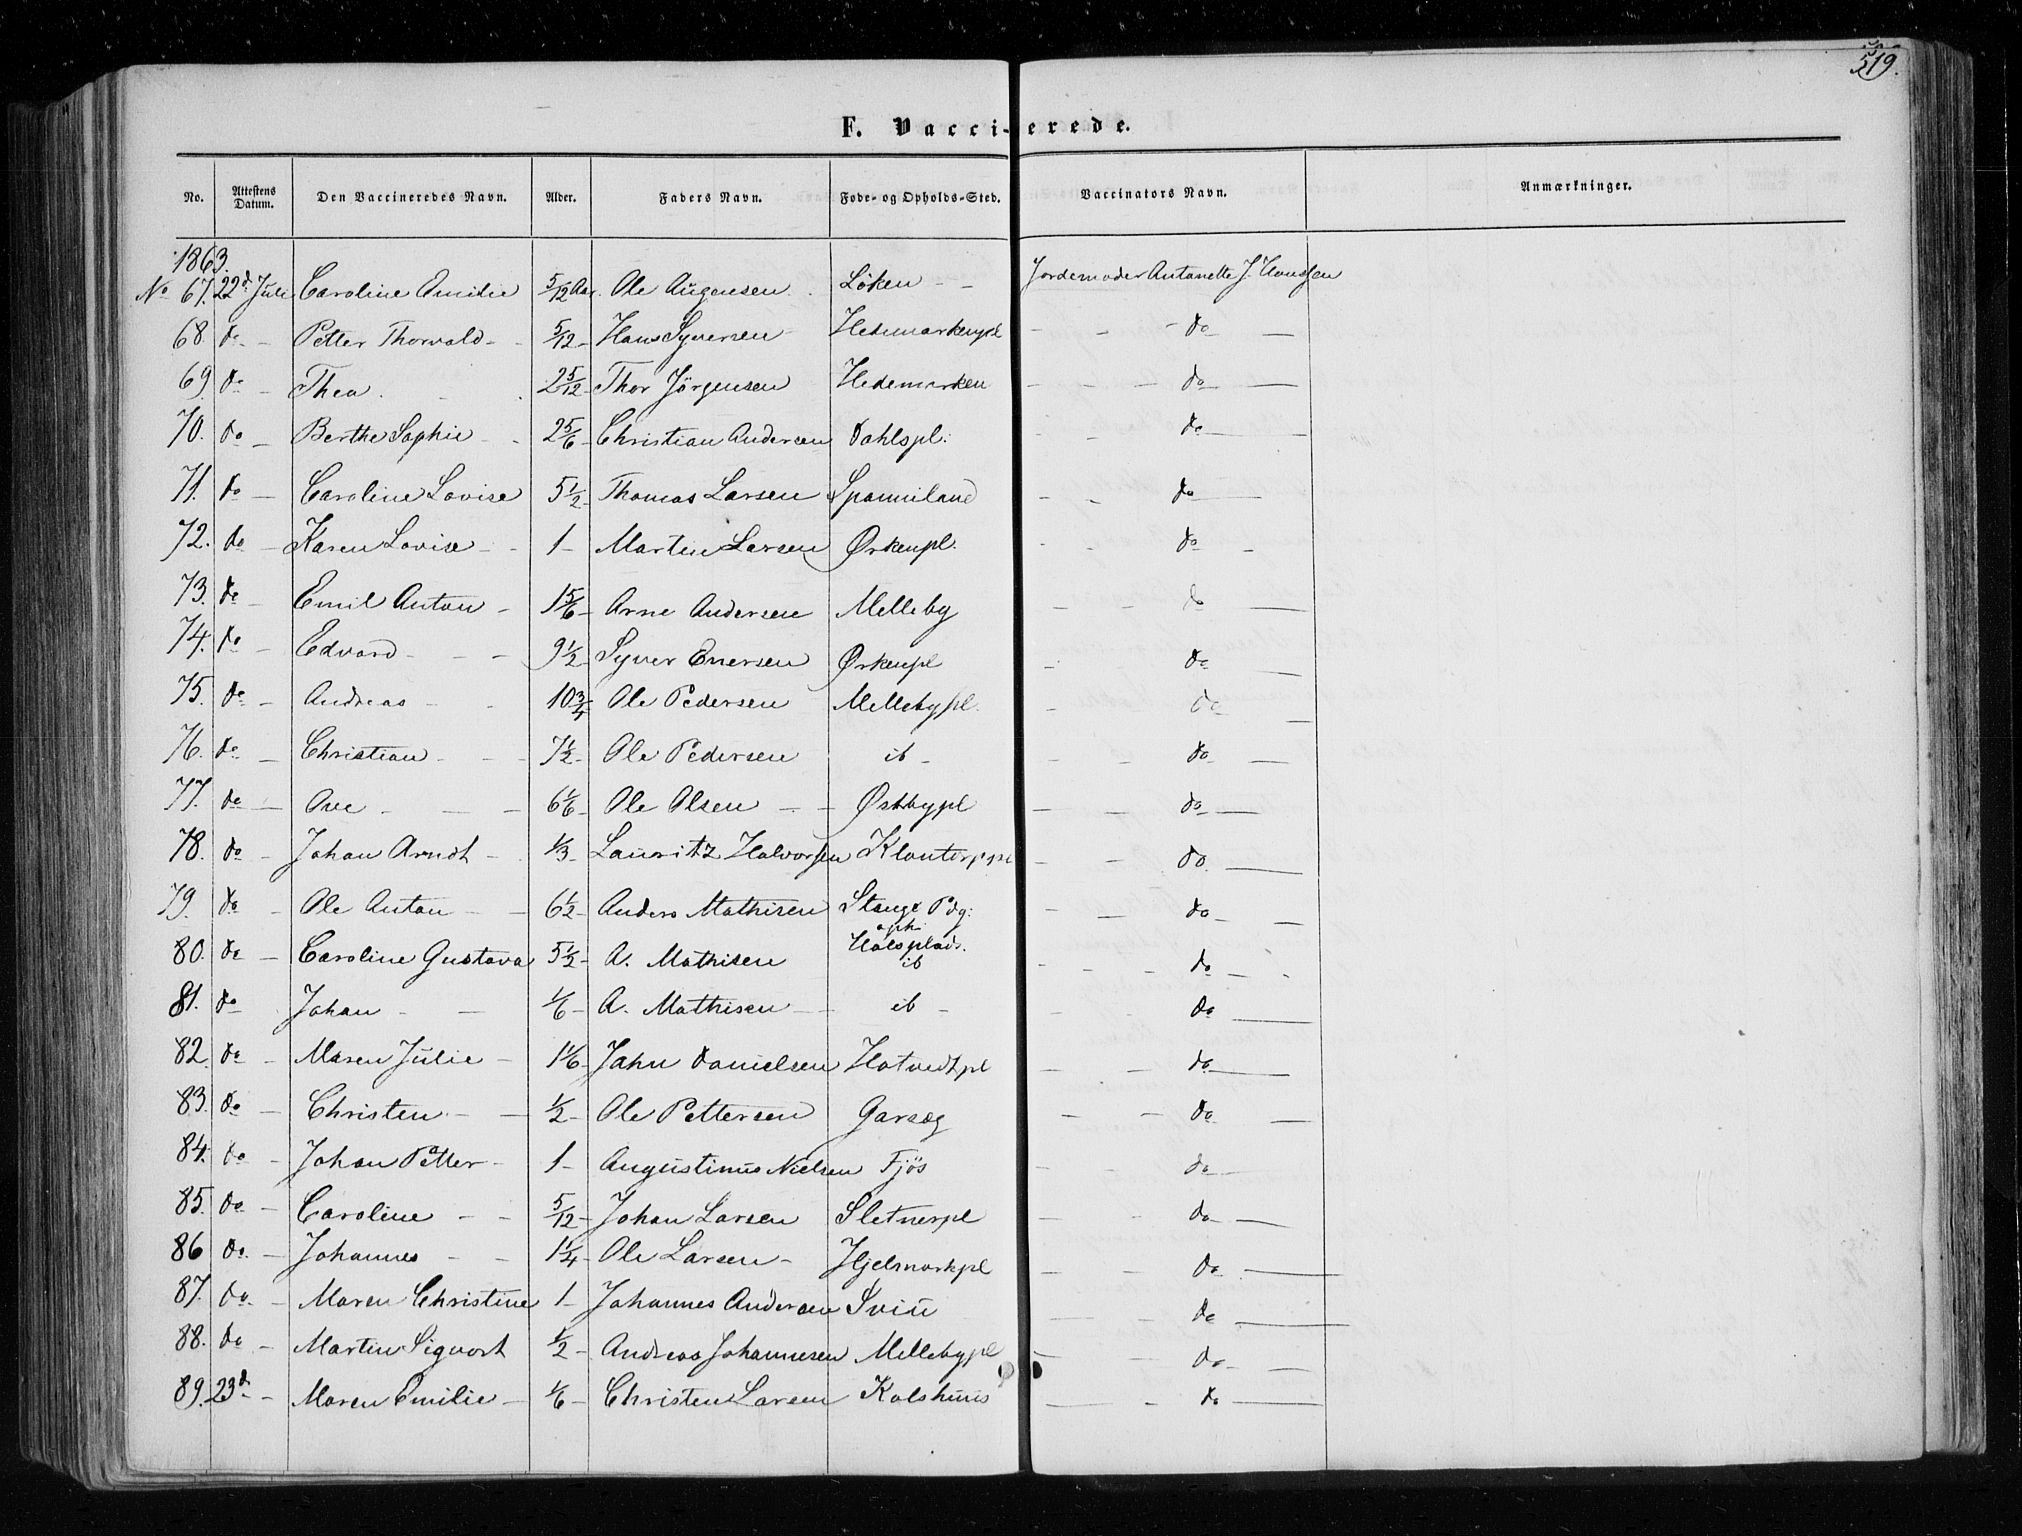 519.
F. Vaccinerede.
No. Attestens Datum. Den Vaccineredes Navn. Alder. Faders Navn. Føde- og Opholds-Sted. Vaccinators Navn. Anmærkninger.
1863.
No 67. 22d Juli Caroline Emilie 5/12 Aar. Ole Augensen Löken Jordemoder Antonette J. Hansen
68. do Petter Thorvald 5/12 Hans Syversen Hedemarkenpl do
69. do Thea 2 5/12 Thor Jörgensen Hedemarken do
70. do Berthe Sophie 2 5/6 Christian Andersen Dahlspl. do
71. do Caroline Lovise 5 1/2 Thomas Larsen Spanniland do
72. do Karen Lovise 1 Martin Larsen Ørkenpl. do
73. do Emil Anton 1 5/6 Arne Andersen Melleby do
74. do Edvard 9 1/2 Syver Enersen Ørkenpl do
75. do Andreas 10 3/4 Ole Pedersen Mellebypl. do
76. do Christian 7 1/2 Ole Pedersen ib do
77. do Ove 6 1/6 Ole Olsen Østbypl do
78. do Johan Arndt 1/3 Lauritz Halvorsen Klonterppl do
79. do Ole Anton 6 1/2 Anders Mathisen Stange Pdg: do
oph. Halsplads.
80. do Caroline Gustava 5 1/2 A. Mathisen ib do
81. do Johan 1/6 A. Mathisen ib do
82 do Maren Julie 1 1/6 John Danielsen Hotvedtpl do
83. do Christen 1/2 Ole Pettersen Garseg do
84. do Johan Petter 1 Augustinus Nielsen Fjös do
85. do Caroline 5/12 Johan Larsen Sletnerpl do
86 do Johannes 1 1/4 Ole Larsen Hjelmarkpl do
87. do Maren Christine 1 Johannes Andersen Sviü do
88. do Martin Sigvart 1/2 Andreas Johannesen Mellebypl do
89. 23d Maren Emilie 1/6 Christen Larsen Kolshuus do